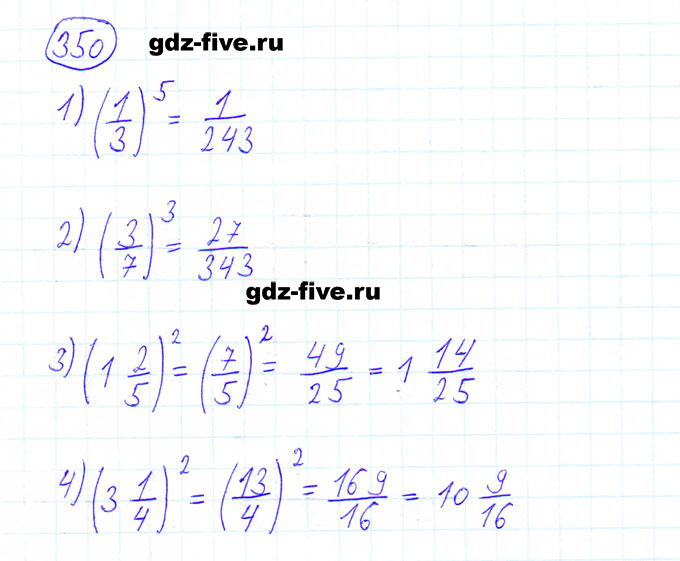 350 gdz-five.ru
1) (1/3)^5 = 1/243
2) (3/7)^3 = 27/343
gdz-five.ru
3) (1 2/5)^2 = (7/5)^2 = 49/25 = 1 14/25
4) (3 1/4)^2 = (13/4)^2 = 169/16 = 10 9/16